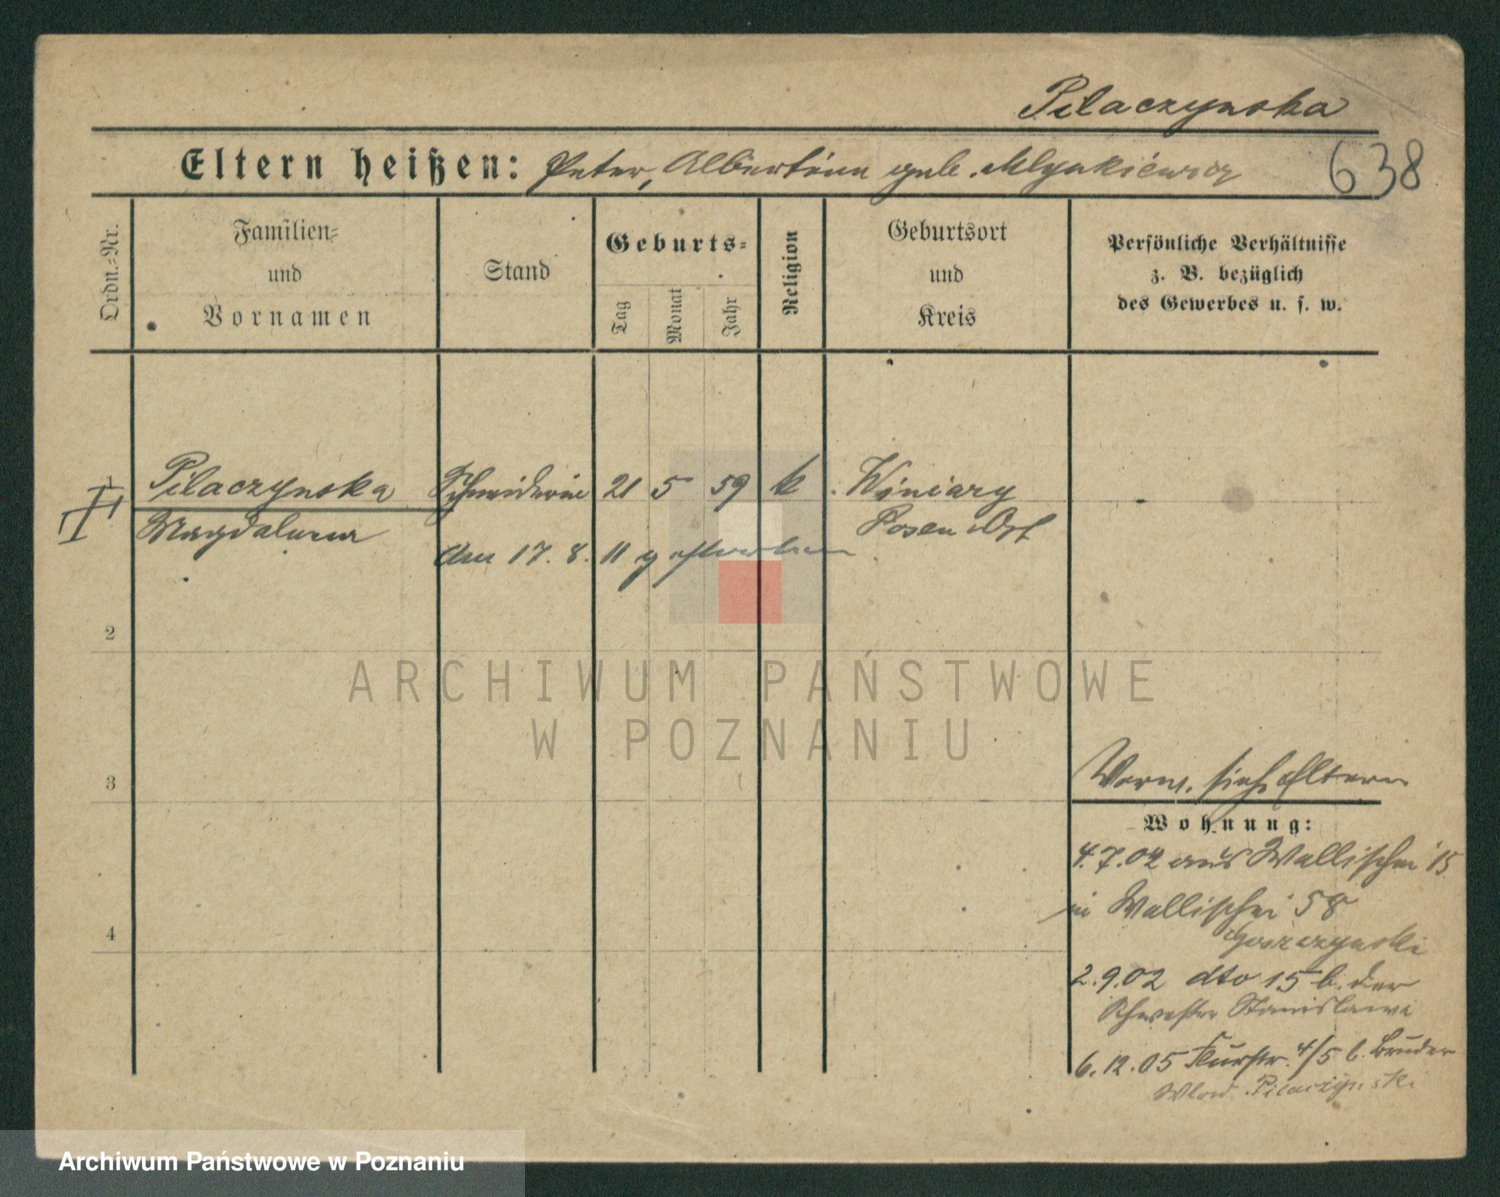 Pilaczynska
Eltern heißen: Peter, Albertine geb. Mlynkiewicz
638
Ordn.=Nr.
Familien=
und
Vornamen
Stand
Geburts=
Tag
Monat
Jahr
Religion
Geburtsort
und
Kreis
Persönliche Verhältnisse
z. B. bezüglich
des Gewerbes u. s. w.
1 Pilaczynska Schneiderin 21 5 59 k Winiary
Magdalena Posen Ost
Am 17. 8. 11 gestorben
2
ARCHIWUM PAŃSTWOWE
W POZNANIU
3
Vorw. sieh. Eltern
Wohnung:
4.7.02 aus Wallischei 15
in Wallischei 58
4
Goszczynski
2.9.02 dto 15 b. der
Schwester Stanislawa
6.12.05 Flurstr. 4/5 b. Bruder
Wlad. Pilaczynski
Archiwum Państwowe w Poznaniu